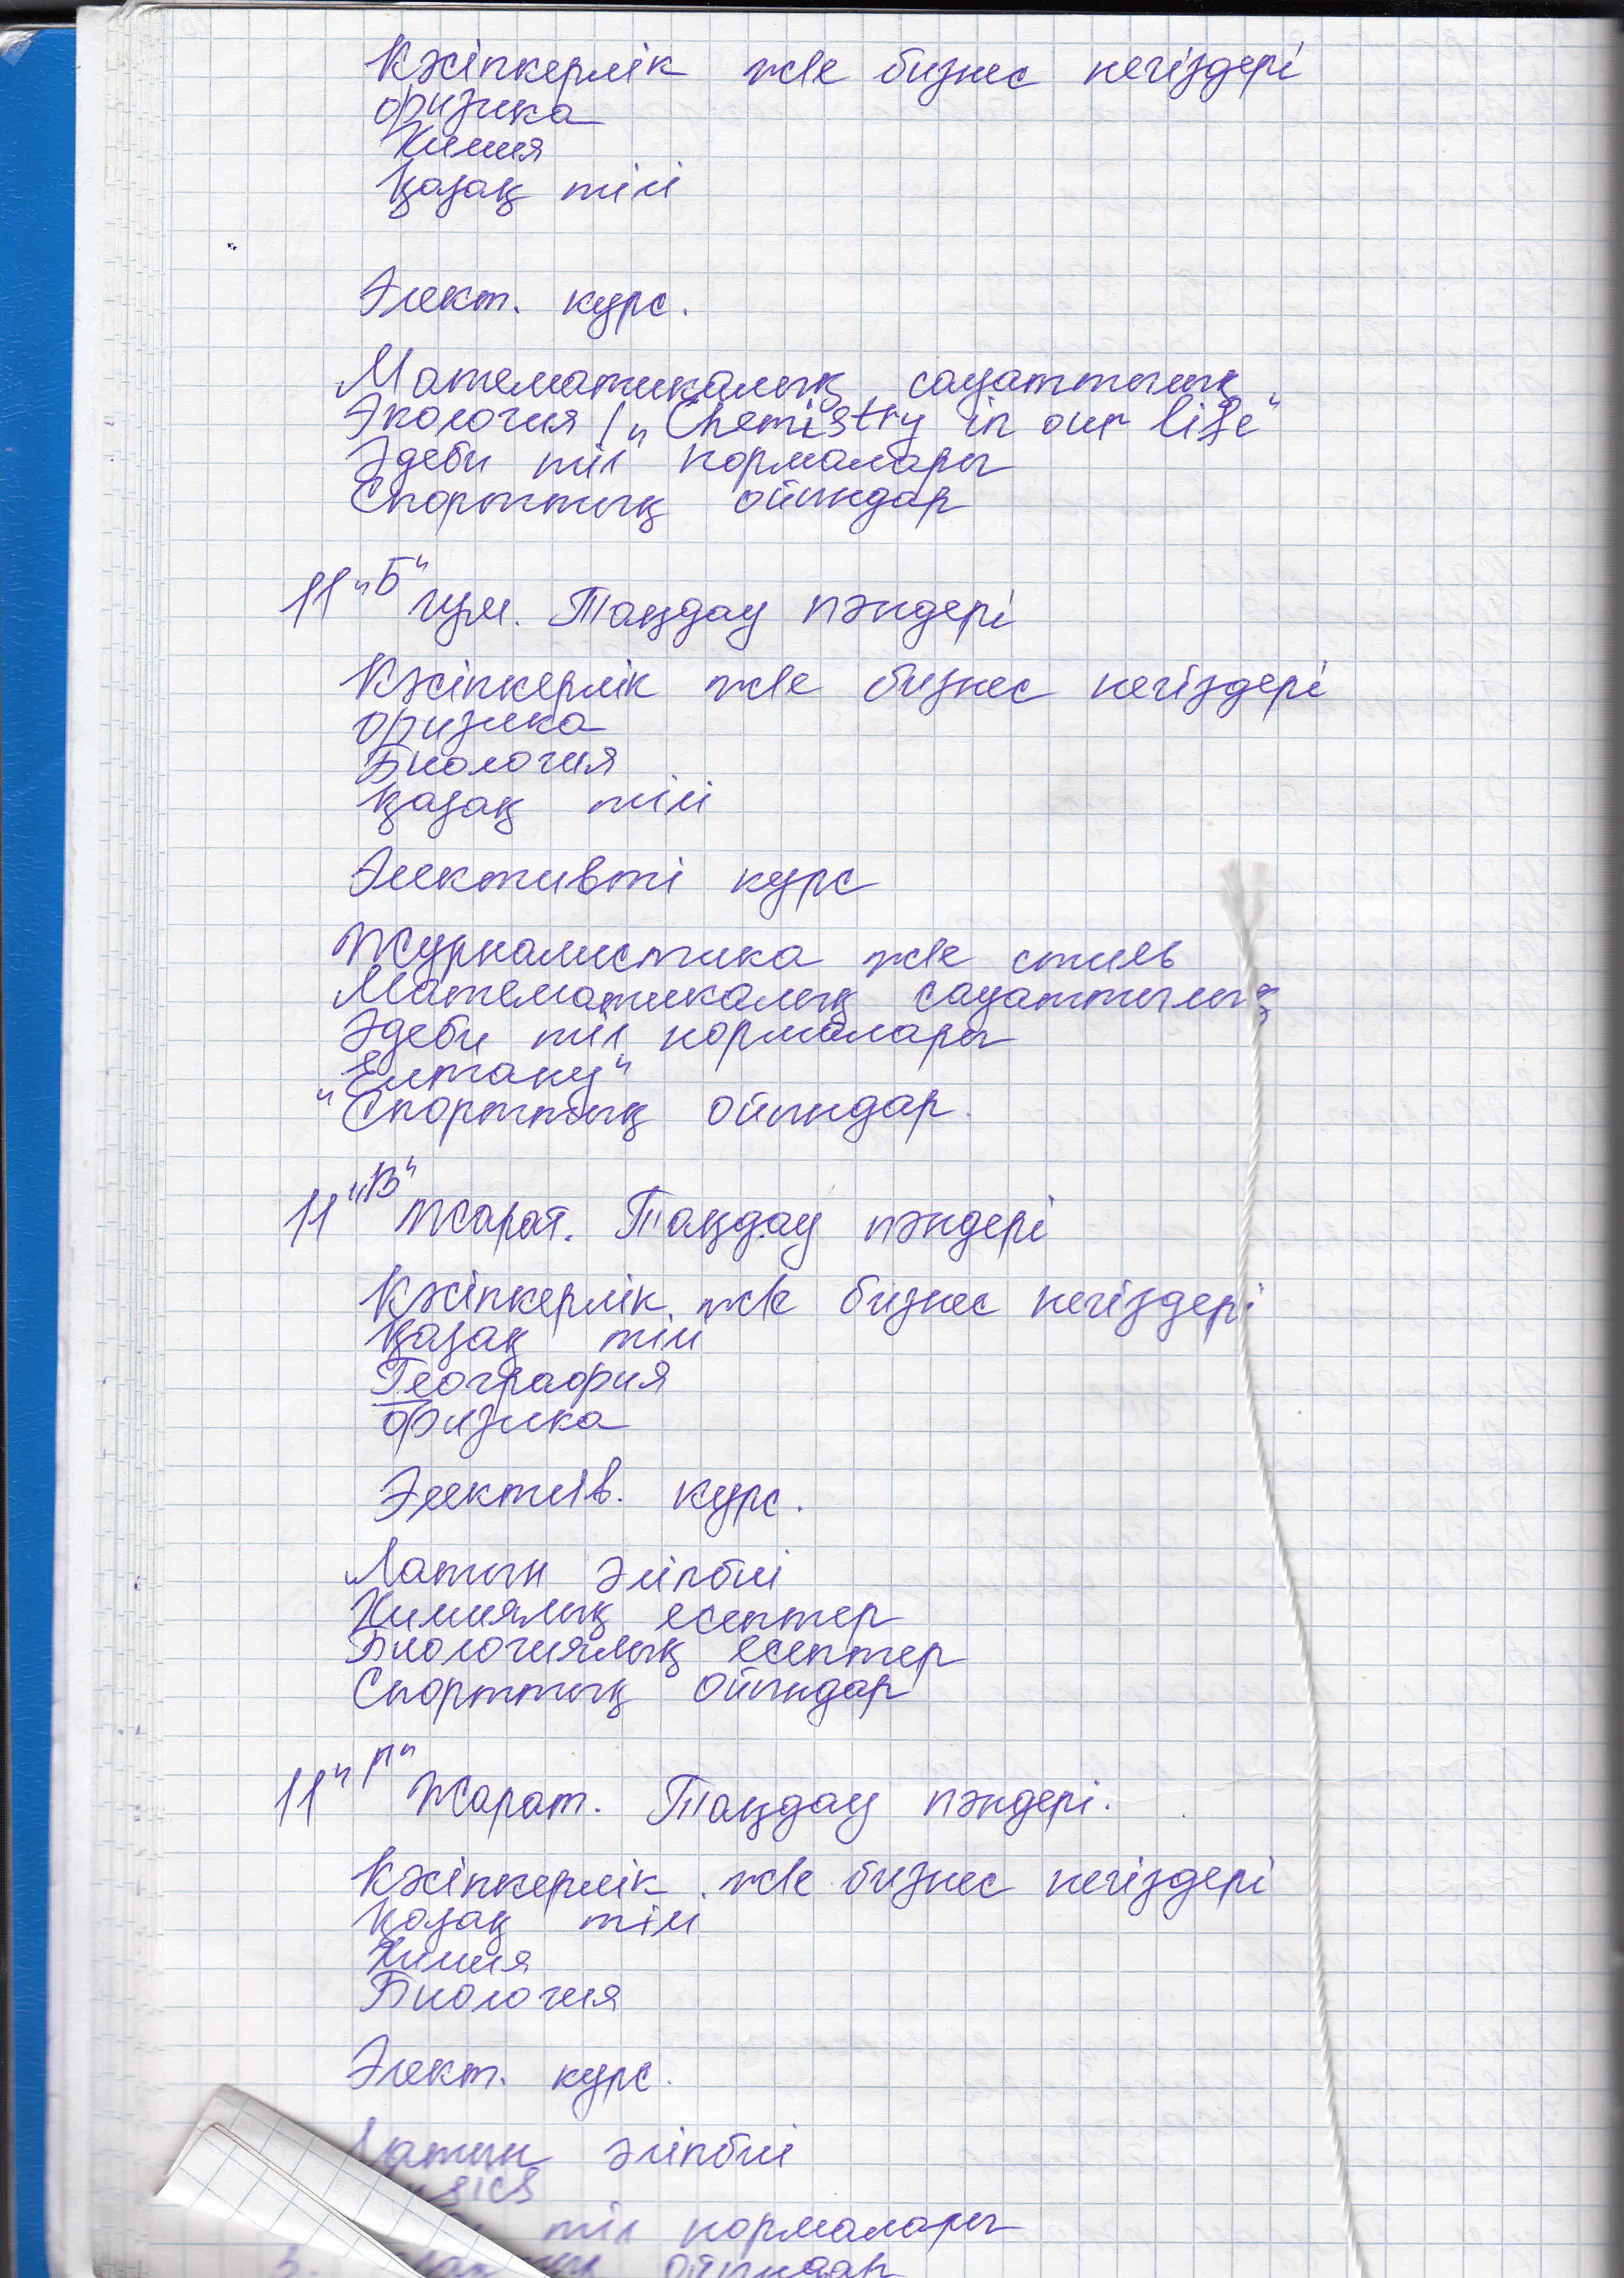 Кәсіпкерлік жәе бизнес негіздері
Физика
Химия
Қазақ тілі
Элект. курс.
Математикалық сауаттылық
Экология / „Chemistry in our life“
Әдеби тіл нормалары
Спорттық ойындар
11 „Б“ гум. Таңдау пәндері
Кәсіпкерлік жәе бизнес негіздері
Физика
Биология
Қазақ тілі
Элективті курс
Журналистика жәе стиль
Математикалық сауаттылық
Әдеби тіл нормалары
„Елтану“
Спорттық ойындар.
11 „В“ Жарат. Таңдау пәндері
Кәсіпкерлік жәе бизнес негіздері
Қазақ тілі
География
Физика
Электив. курс.
Латын әліпбиі
Химиялық есептер
Биологиялық есептер
Спорттық ойындар
11 „Г“ Жарат. Таңдау пәндері.
Кәсіпкерлік жәе бизнес негіздері
Қазақ тілі
Химия
Биология
Элект. курс.
Латын әліпбиі
тіл нормалары
ойындар